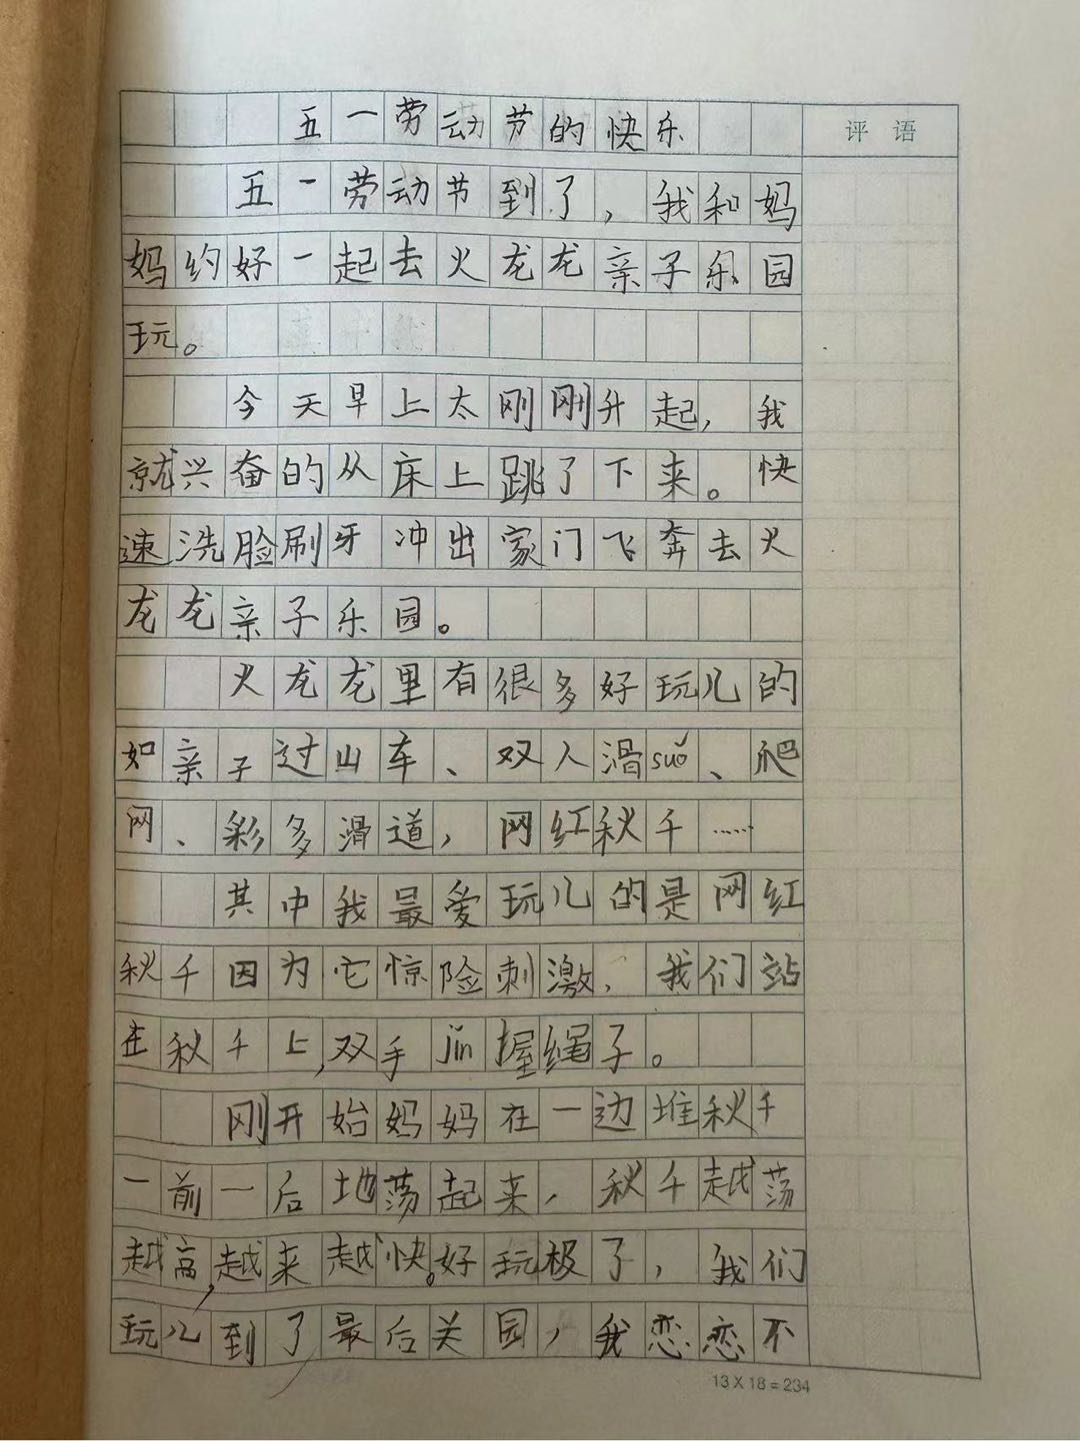 五一劳动节的快乐
评 语
五一劳动节到了，我和妈
妈约好一起去火龙龙亲子乐园
玩。
今天早上太刚刚升起，我
就兴奋的从床上跳了下来。快
速洗脸刷牙冲出家门飞奔去火
龙龙亲子乐园。
火龙龙里有很多好玩儿的
如亲子过山车、双人滑suǒ、爬
网、彩多滑道，网红秋千……
其中我最爱玩儿的是网红
秋千因为它惊险刺激，我们站
在秋千上，双手jǐn握绳子。
刚开始妈妈在一边堆秋千
一前一后地荡起来，秋千越荡
越高，越来越快。好玩极了，我们
玩儿到了最后关园，我恋恋不
13×18=234